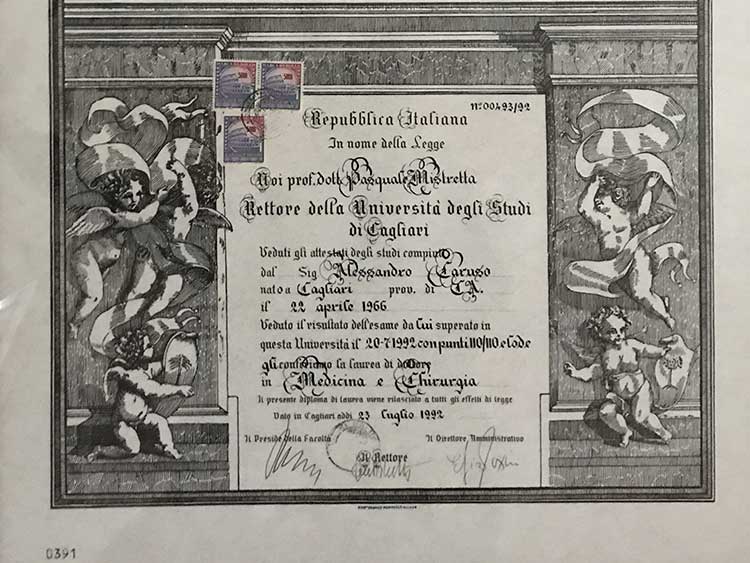 nº 00493/92
Repubblica Italiana
In nome della Legge
Noi prof. dott. Pasquale Mistretta
Rettore della Università degli Studi
di Cagliari
Veduti gli attestati degli studi compiuti
dal Sig Alessandro Caruso
nato a Cagliari prov. di CA.
il 22 aprile 1966
Veduto il risultato dell'esame da Lui superato in
questa Università il 20-7-1992 con punti 110/110 e Lode
gli conferiamo la laurea di dottore
in Medicina e Chirurgia
Il presente diploma di laurea viene rilasciato a tutti gli effetti di legge
Dato in Cagliari addì 23 Luglio 1992
Il Preside della Facoltà Il Direttore Amministrativo
Il Rettore
0391